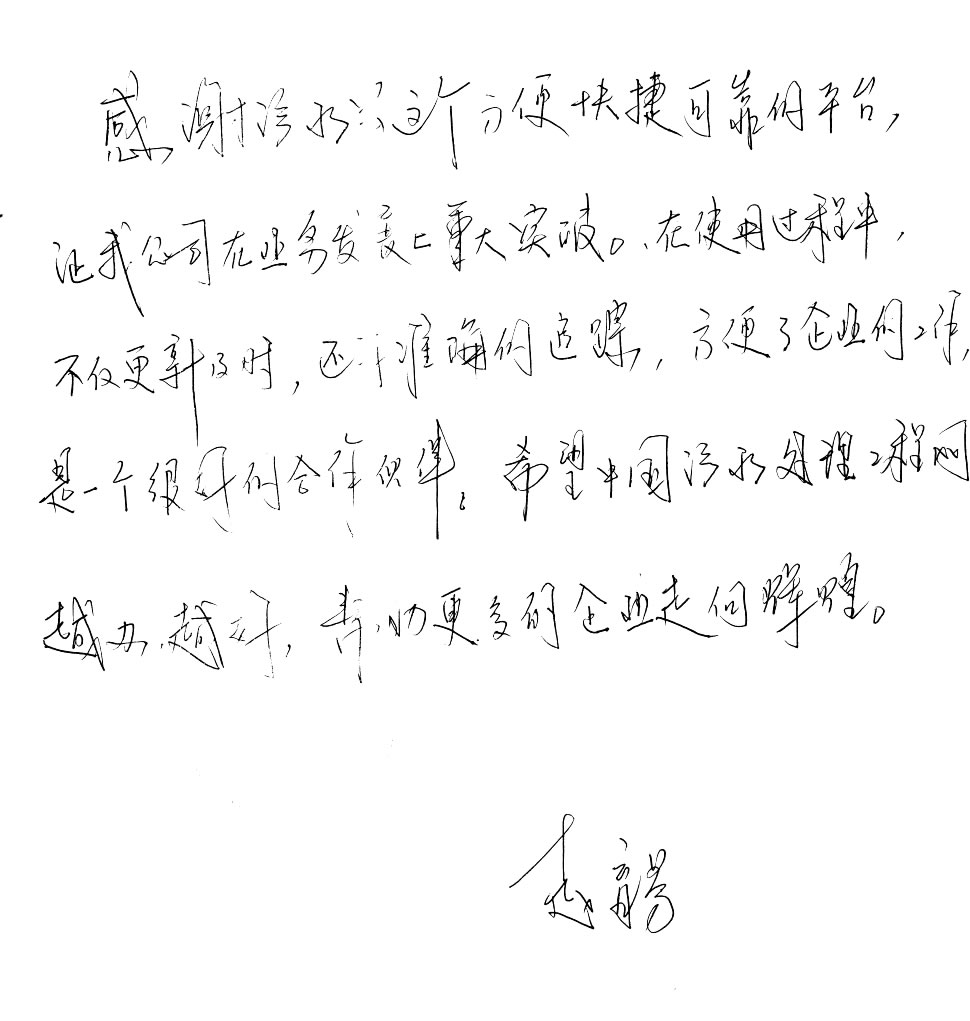 感谢污水宝这个方便快捷可靠的平台，
让我公司在业务发展上重大突破。在使用过程中，
不仅更新及时，还有准确的追踪，方便了企业的工作，
是一个很好的合作伙伴。希望中国污水处理工程网
越办越好，帮助更多的企业走向辉煌。